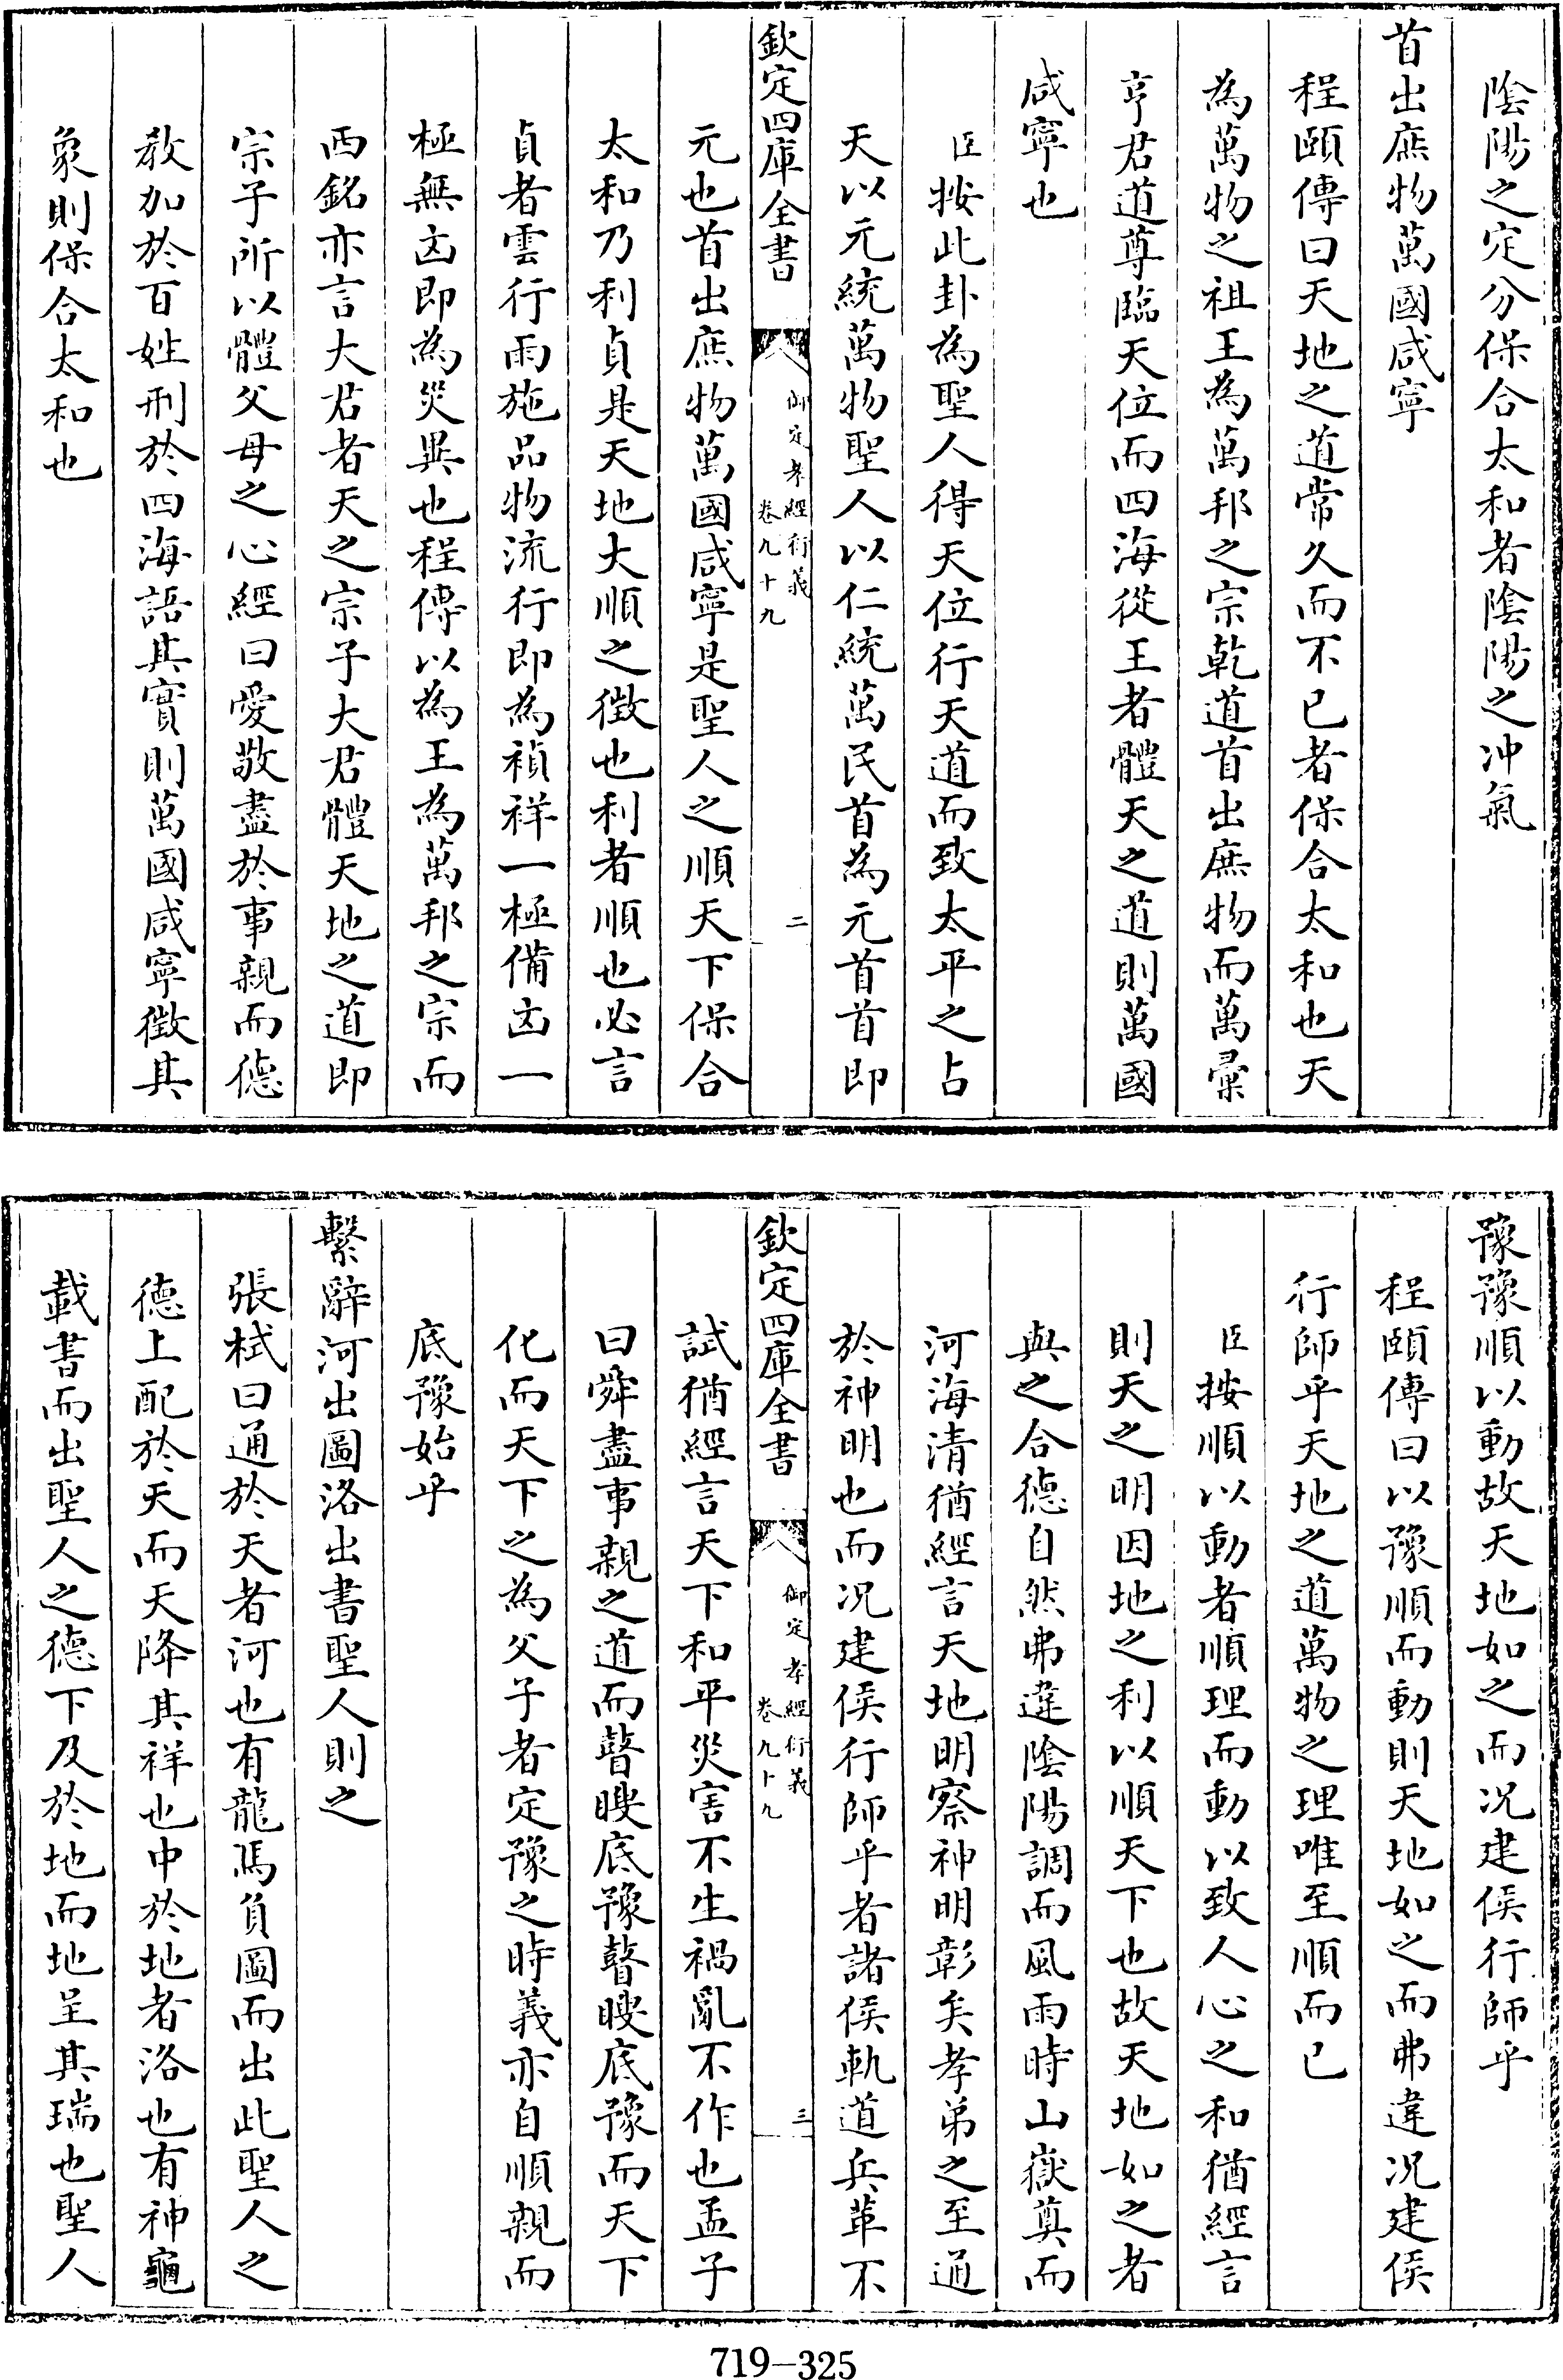 陰陽之定分保合太和者陰陽之冲氣
首出庶物萬國咸寧
程頤傳曰天地之道常久而不已者保合太和也天
為萬物之祖王為萬邦之宗乾道首出庶物而萬彙
亨君道尊臨天位而四海從王者體天之道則萬國
咸寧也
臣按此卦為聖人得天位行天道而致太平之占
天以元統萬物聖人以仁統萬民首為元首首即
欽定四庫全書
御定孝經衍義
卷九十九
二
元也首出庶物萬國咸寧是聖人之順天下保合
太和乃利貞是天地大順之徵也利者順也必言
貞者雲行雨施品物流行即為禎祥一極備凶一
極無凶即為災異也程傳以為王為萬邦之宗而
西銘亦言大君者天之宗子大君體天地之道即
宗子所以體父母之心經曰愛敬盡於事親而德
教加於百姓刑於四海語其實則萬國咸寧徵其
象則保合太和也
豫豫順以動故天地如之而况建侯行師乎
程頤傳曰以豫順而動則天地如之而弗違况建侯
行師乎天地之道萬物之理唯至順而已
臣按順以動者順理而動以致人心之和猶經言
則天之明因地之利以順天下也故天地如之者
與之合德自然弗違陰陽調而風雨時山嶽奠而
河海清猶經言天地明察神明彰矣孝弟之至通
於神明也而况建侯行師乎者諸侯軌道兵革不
欽定四庫全書
御定孝經衍義
卷九十九
三
試猶經言天下和平災害不生禍亂不作也孟子
曰舜盡事親之道而瞽瞍底豫瞽瞍底豫而天下
化而天下之為父子者定豫之時義亦自順親而
底豫始乎
繫辭河出圖洛出書聖人則之
張栻曰通於天者河也有龍馬負圖而出此聖人之
德上配於天而天降其祥也中於地者洛也有神龜
載書而出聖人之德下及於地而地呈其瑞也聖人
719-325